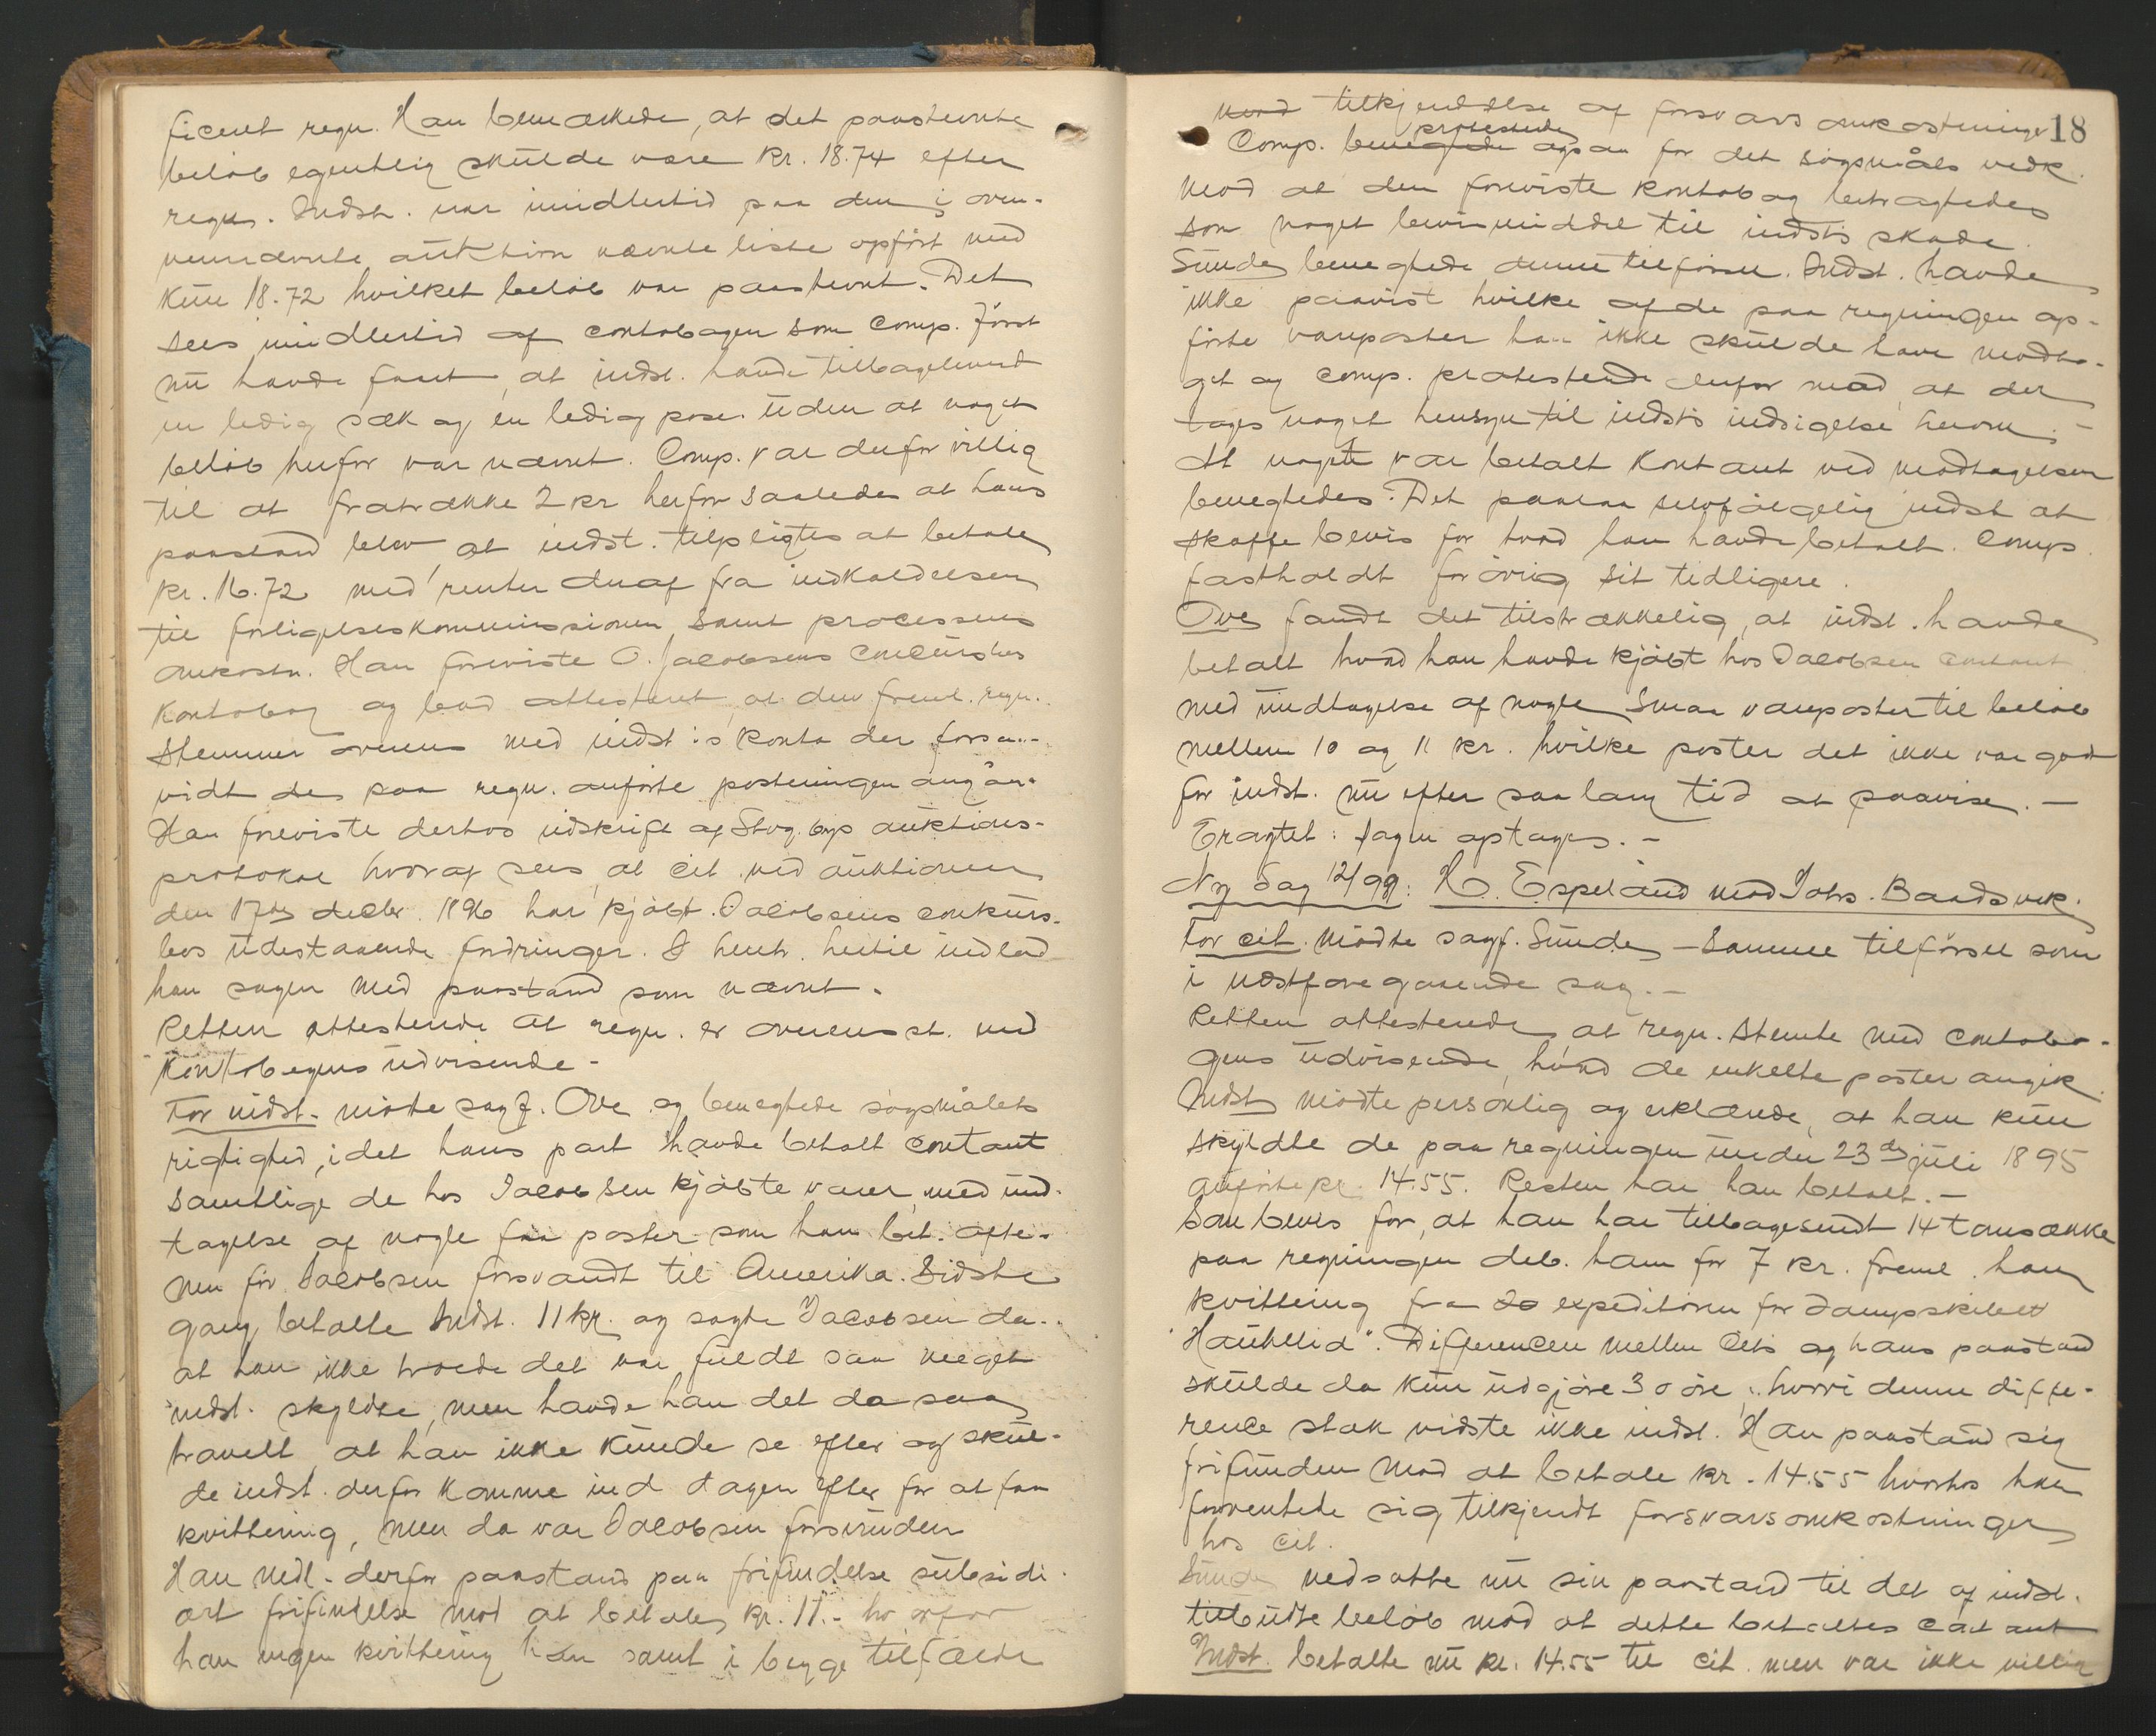 ficeret regn. Han bemærkede, at det paastevnte
beløb egentlig skulde være kr. 18.74 efter
regn. Indst. var imidlertid paa den i oven-
nævnte auktion nævnte liste opført med
kun 18.72 hvilket beløb var paastevnt. Det
sees imidlertid af contobogen som Comp. først
nu havde faaet, at indst. havde tilbageleveret
en ledig sæk og en ledig pose uden at noget
beløb herfor var nævnt. Comp. var derfor villig
til at fratrække 2 kr herfor saaledes at hans
paastand blev at indst. tilpligtes at betale
kr. 16.72 med renter deraf fra indkaldelsen
til forligelseskommissionen samt processens
omkostn. Han foreviste O. Jacobsens Concursbos
Kontobog og bad attesteret, at den freml. regn.
stemmer overens med indst:s konto der forsaa-
vidt de paa regn. anførte posteringer angaar.
Han foreviste derhos udskrift af Stvg. bys auktions-
protokol hvoraf sees, at cit. ved auktionen
den 17de decbr. 1896 har kjøbt Jacobsens conkurs-
bos udestaaende fordringer. I henh. hertil indlod
han sagen med paastand som nævnt.
Retten attesterede at regn. er overensst. med
Kontobogens udvisende -
For indst. mødte sagf. Ove og benegtede søgsmålets
rigtighed, idet hans part havde betalt contant
samtlige de hos Jacobsen kjøbte varer, med und-
tagelse af nogle faa poster som han bet. afte-
nen før Jacobsen forsvandt til Amerika. Sidste
gang betalte Indst. 11 kr. og sagde Jacobsen da
at han ikke troede det var fuldt saa meget
indst. skyldte, men havde han det da saa
travelt at han ikke kunde se efter og skul-
de indst. derfor komme ind dagen efter for at faa
kvittering, men da var Jacobsen forsvunden
Han nedl. derfor paastand paa frifindelse subsidi-
ært frifindelse mod at betale kr. 11.- hvorfor
han ingen kvittering har samt i begge tilfælde
18
mod tilkjendelse af forsvarsomkostninger
protesterede
Comp. benegtede ogsaa for det søgsmåls vedk.
mod at den foreviste kontobog betragtedes
som noget bevismiddel til indsts skade.
Sunde benegtede denne tilførsel. Indst. havde
ikke paavist hvilke af de paa regningen op-
førte vareposter han ikke skulde have modta-
get og comp. protesterede derfor mod, at der
tages noget hensyn til indsts indsigelse herom. -
At noget var betalt Kontant ved modtagelsen
benegtedes. Det paalaa selvfølgelig indst at
skaffe bevis for hvad han havde betalt. Comp.
fastholdt forøvrig sit tidligere.
Ove fandt det tilstrækkelig, at indst. havde
betalt hvad han havde kjøbt hos Jacobsen contant
med undtagelse af nogle smaa vareposter til beløb
mellem 10 og 11 kr. hvilke poster det ikke var godt
for indst. nu efter saa lang tid at paavise. -
Eragtet: Sagen optages. -
Ny Sag 12/99: H. Espeland mod Johs. Bandsvek.
For cit. mødte sagf. Sunde - Samme tilførsel som
i næstforegaaende sag. -
Retten attesterede at regn. stemte med contobo-
gens udvisende, hvad de enkelte poster angik.
Indst mødte personlig og erklærede, at han kun
skyldte de paa regningen under 23de juli 1895
anførte kr. 14.55. Resten har han betalt. -
Som bevis for, at han har tilbagesendt 14 tomsække
paa regningen deb. ham for 7 kr. freml. han
kvittering fra expeditøren for dampskibet
"Haukelid". Differencen mellem Cits og hans paastand
skulde da kun udgjøre 30 øre; hvori denne diffe-
rence stak vidste ikke indst. Han paastaad sig
frifunden mod at betale kr. 14.55 hvorhos han
forventede sig tilkjendt forsvarsomkostninger
hos cit.
Sunde nedsatte nu sin paastand til det af indst.
tilbudte beløb mod at dette betaltes contant
Indst. betalte nu kr. 14.55 til cit. men var ikke villig